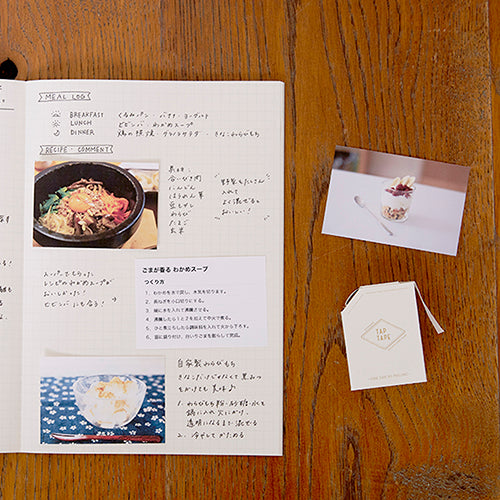 MEAL LOG
BREAKFAST くるみパン・バナナ・ヨーグルト
LUNCH ビビンバ・わかめスープ
DINNER 鶏の照焼・グリーンサラダ・きなこわらびもち
RECIPE・COMMENT
具材:
合いびき肉
にんじん
ほうれん草
豆もやし
わらび
たまご
玄米
野菜をたくさん
入れて
よく混ぜると
おいしい!
スーパーでもらった
レシピのわかめスープが
おいしかった!
ビビンバにも合う!
ごまが香る わかめスープ
つくり方
1. わかめを水で戻し、水気を切ります。
2. 長ねぎを小口切りにする。
3. 鍋に水を入れて沸騰させる。
4. 沸騰したら1と2を加えて中火で煮る。
5. ひと煮立ちしたら調味料を入れて火から下ろす。
6. 器に盛り付け、白いりごまを散らして完成。
自家製わらびもち
きなこだけじゃなくて黒みつ
をかけても美味♪
1. わらびもち粉・砂糖・水を
鍋に入れ火にかけ、
透明になるまで混ぜる
2. 冷やしてかためる
TAP
TAPE